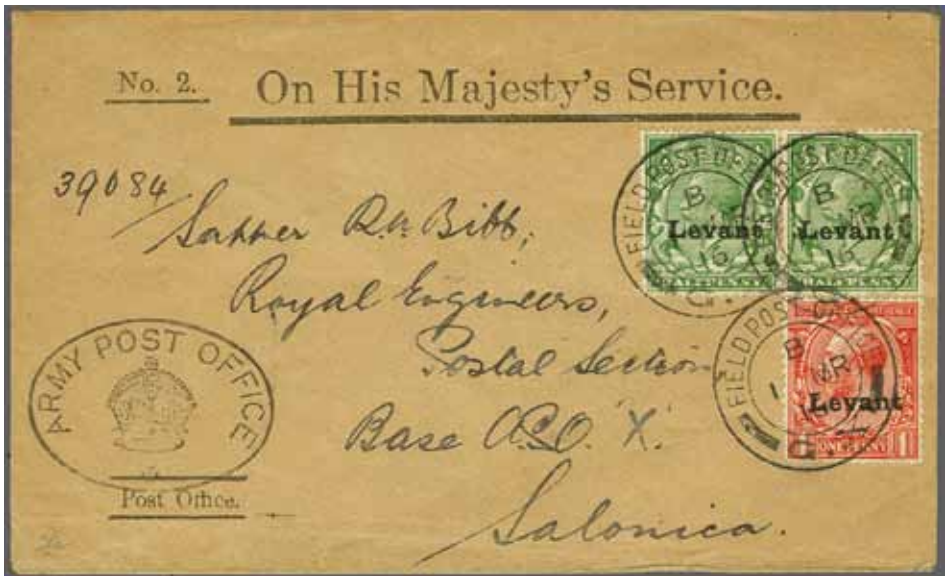 No. 2. On His Majesty's Service.
39084
Sapper R. W. Bibb,
Royal Engineers,
Postal Section
Base A.P.O. X.
Salonica.
ARMY POST OFFICE
Post Office.
FIELD POST OFFICE
B
MR
16
G.
Levant
FIELD POST OFFICE
B
MR
16
Levant
FIELD POST OFFICE
B
MR
G.
Levant
ONE PENNY 1